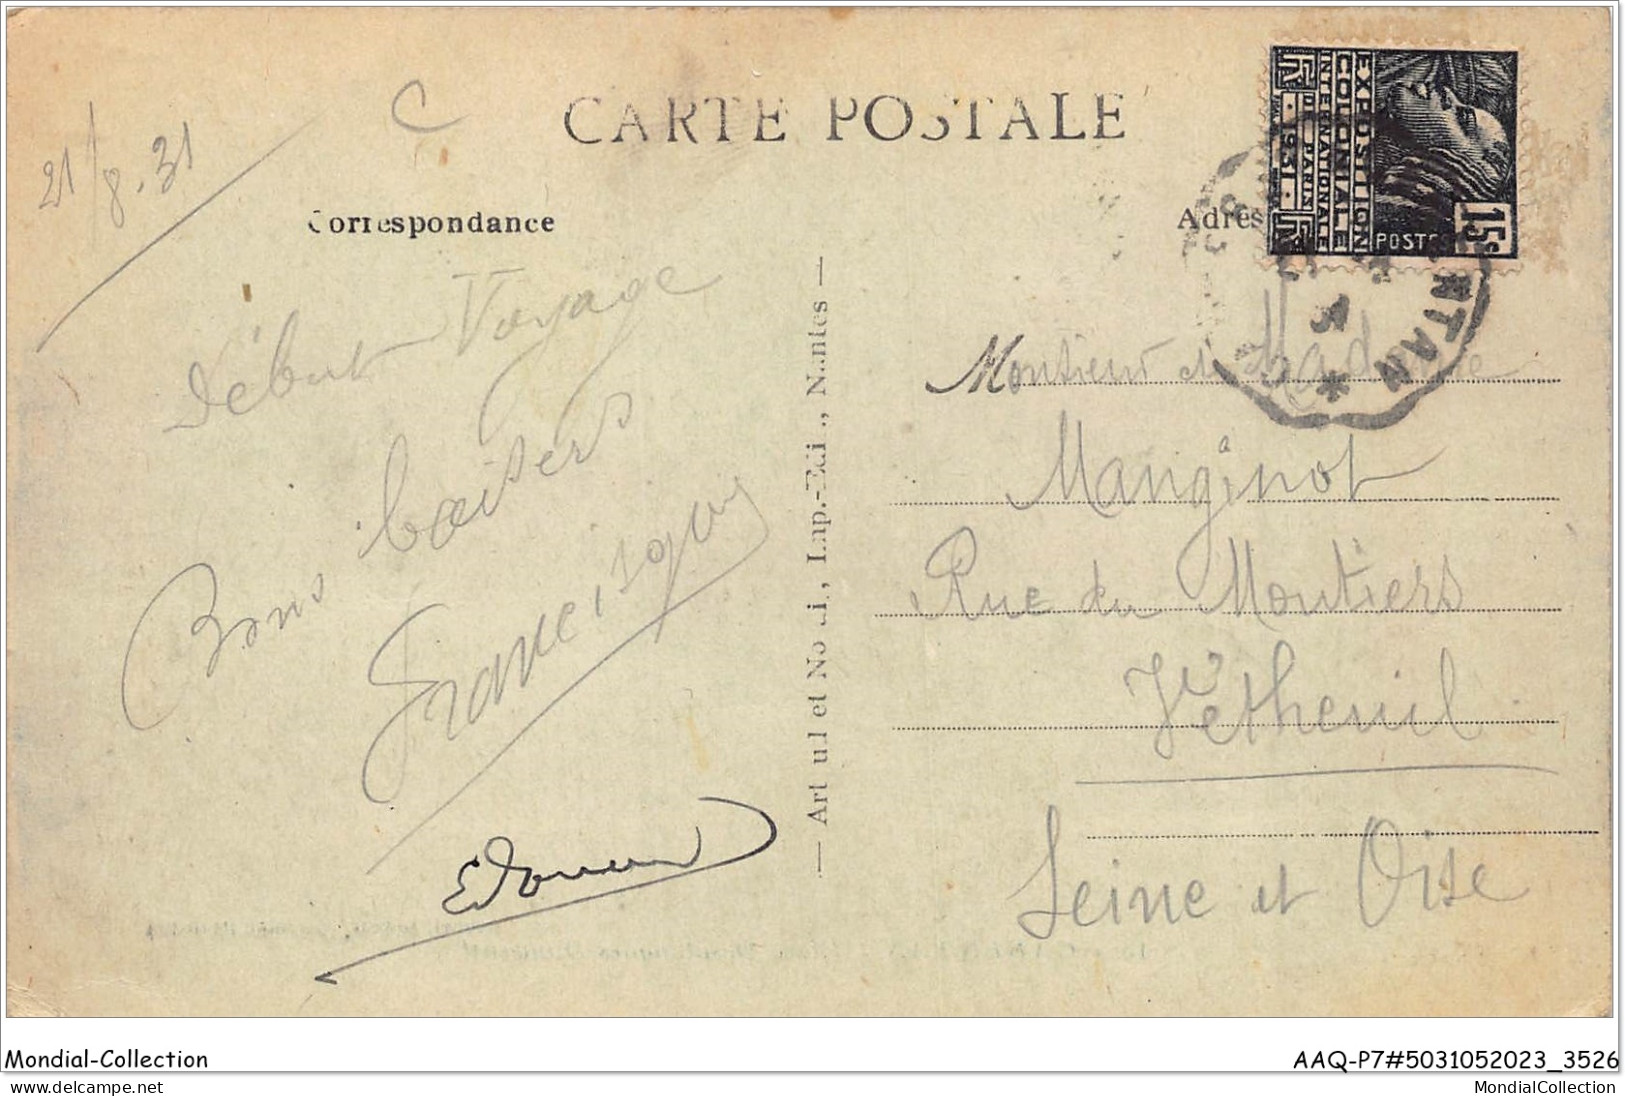 CARTE POSTALE
C
21/8.31
Correspondance
Adres
EXPOSITION
COLONIALE
INTERNATIONALE
DE PARIS
RF · 1931 · RF
POSTES
15c
NTAN *
Début Voyage
Bons baisers
Francisquy
Edouard
— Art ul et No .i., Imp.-Edi ., Nantes —
Monsieur et Madame
Manginot
Rue du Moutiers
Vétheuil
Seine et Oise
Mondial-Collection
AAQ-P7#5031052023_3526
eDelcampe.net
MondialCollection